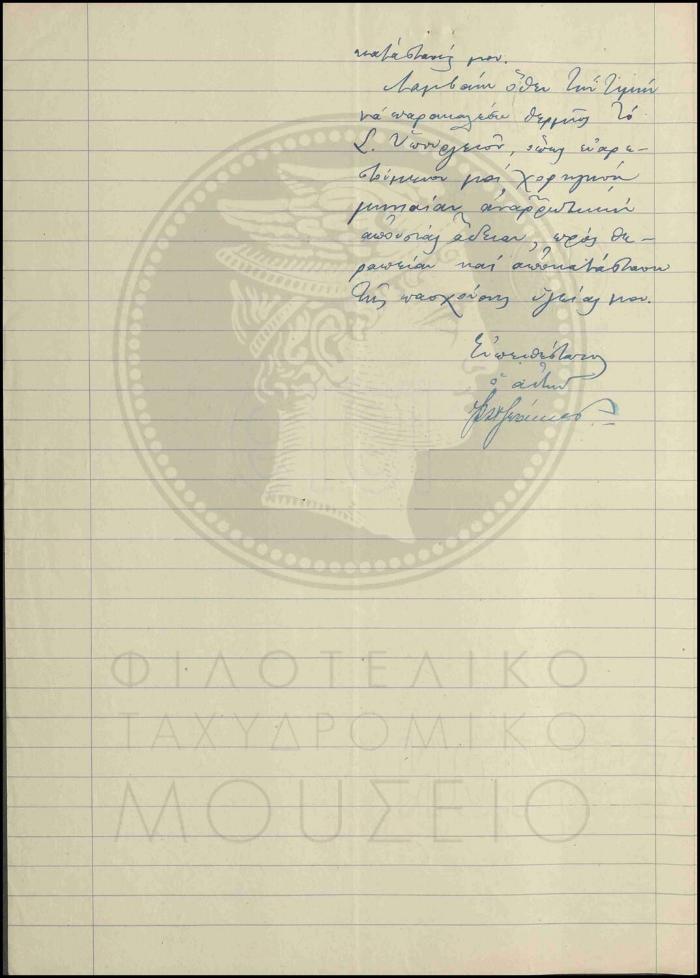 κατάστασίς μου.
Λαμβάνω ὅθεν τὴν τιμὴν
νὰ παρακαλέσω θερμῶς τὸ
Σ. Ὑπουργεῖον, ὅπως εὐαρε-
στούμενον μοὶ χορηγήσῃ
μηνιαίαν ἀναρρωτικὴν
ἀπουσίας ἄδειαν, πρὸς θε-
ραπείαν καὶ ἀποκατάστασιν
τῆς πασχούσης ὑγείας μου.
Εὐπειθέστατος
ὁ αἰτῶν
ΦΙΛΟΤΕΛΙΚΟ
ΤΑΧΥΔΡΟΜΙΚΟ
ΜΟΥΣΕΙΟ